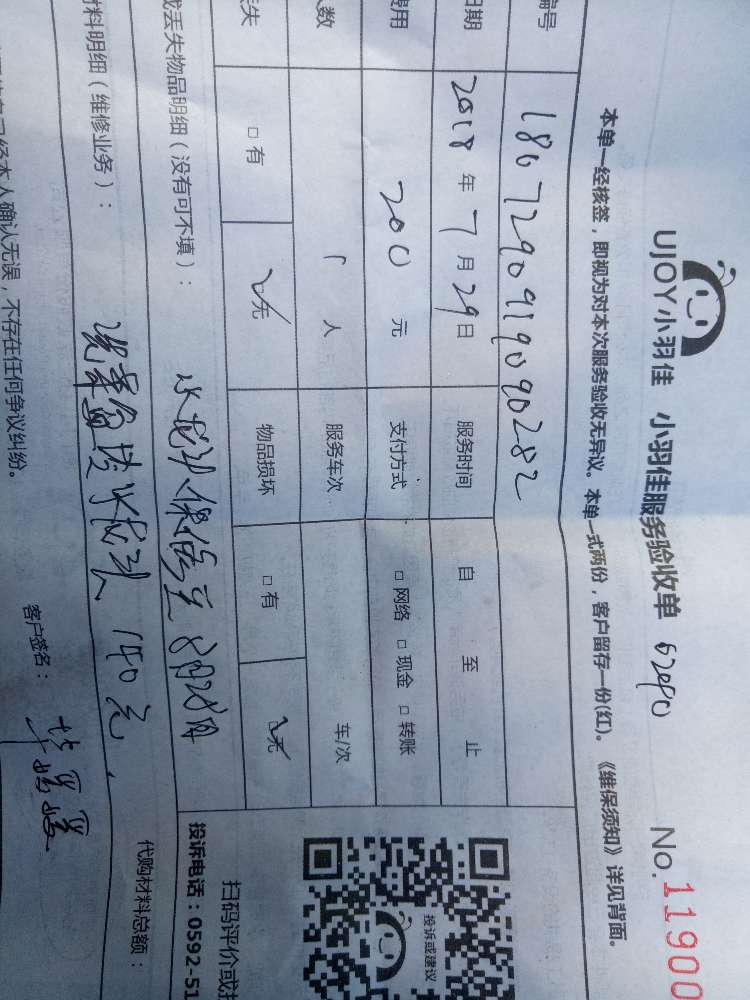 UJOY小羽佳 小羽佳服务验收单 No.11900
本单一经核签，即视为对本次服务验收无异议。本单一式两份，客户留存一份(红)。《维保须知》详见背面。
编号 1807290919090282
日期 2018 年 7 月 29 日 服务时间 自 至 止
费用 200 元 支付方式 □ 网络 □ 现金 □ 转账
人数 人 服务车次 车/次
丢失 □ 有 □无 物品损坏 □ 有 □无
或丢失物品明细（没有可不填）：
材料明细（维修业务）： 140元
代购材料总额：
已经本人确认无误，不存在任何争议纠纷。
客户签名：
投诉或建议
扫码评价或
投诉电话：0592-51